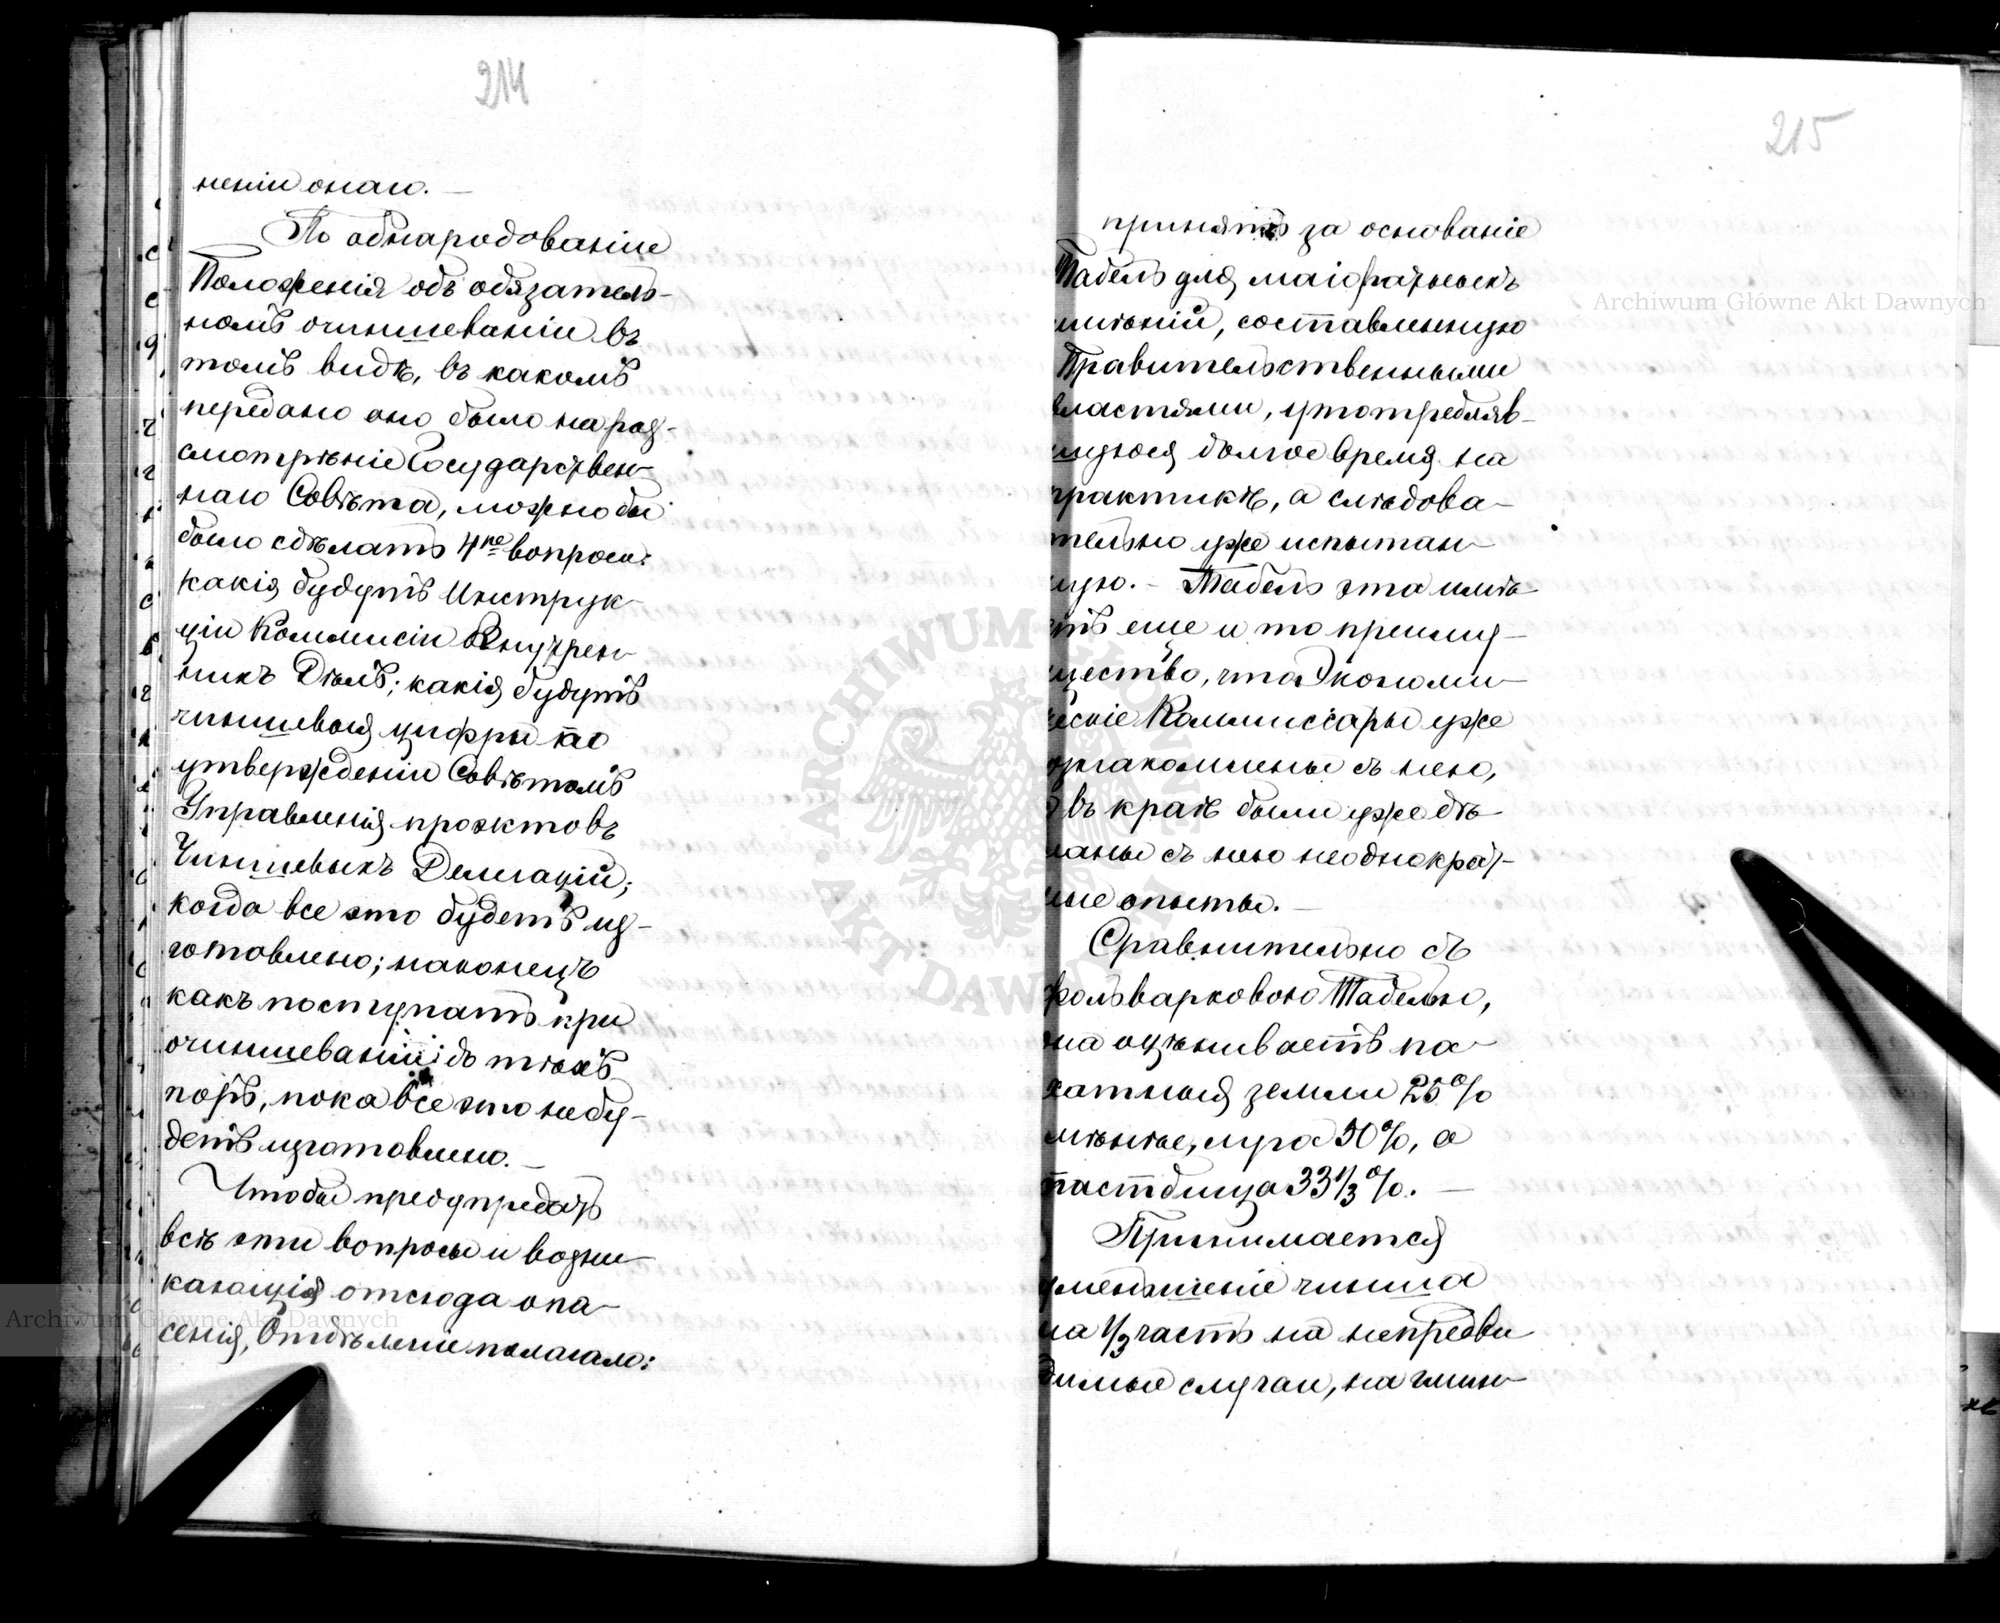 214
неніи онаго. —
По обнародованіи
Положенія объ обязатель-
номъ очиншеваніи въ
томъ видѣ, въ какомъ
передано оно было на раз-
смотрѣніе Государствен-
наго Совѣта, можно бы
было сдѣлать 4ре вопроса:
какія будутъ Инструк-
ціи Коммисіи Внутрен-
нихъ Дѣлъ; какія будутъ
чиншевыя цифры по
утвержденіи Совѣтомъ
Управленія проэктовъ
Чиншевыхъ Делегацій;
когда все это будетъ из-
готовлено; наконецъ
какъ поступать при
очиншеваніи до тѣхъ
поръ, пока все это не бу-
детъ изготовлено. —
Чтобы предупредить
всѣ эти вопросы и возни-
кающія отсюда опа-
сенія, Отдѣленіе полагало:
215
принять за основаніе
Табель для маіоратныхъ
имѣній, составленную
Правительственными
властями, употребляв-
шуюся долгое время на
практикѣ, а слѣдова-
тельно уже испытан-
ную. — Табель эта имѣ-
етъ еще и то преиму-
щество, что Экономи-
ческіе Коммиссары уже
ознакомлены съ нею,
въ краѣ были уже дѣ-
ланы съ нею неоднократ-
ные опыты. —
Сравнительно съ
фольварковою Табелью,
она оцѣниваетъ па-
хатныя земли 25%
мѣнѣе, луга 50%, а
пастбища 33 1/3 %. —
Принимается
уменьшеніе чинша
на 1/3 часть на непредви-
димые случаи, на
Archiwum Główne Akt Dawnych
Archiwum Główne Akt Dawnych
ARCHIWUM GŁÓWNE AKT DAWNYCH